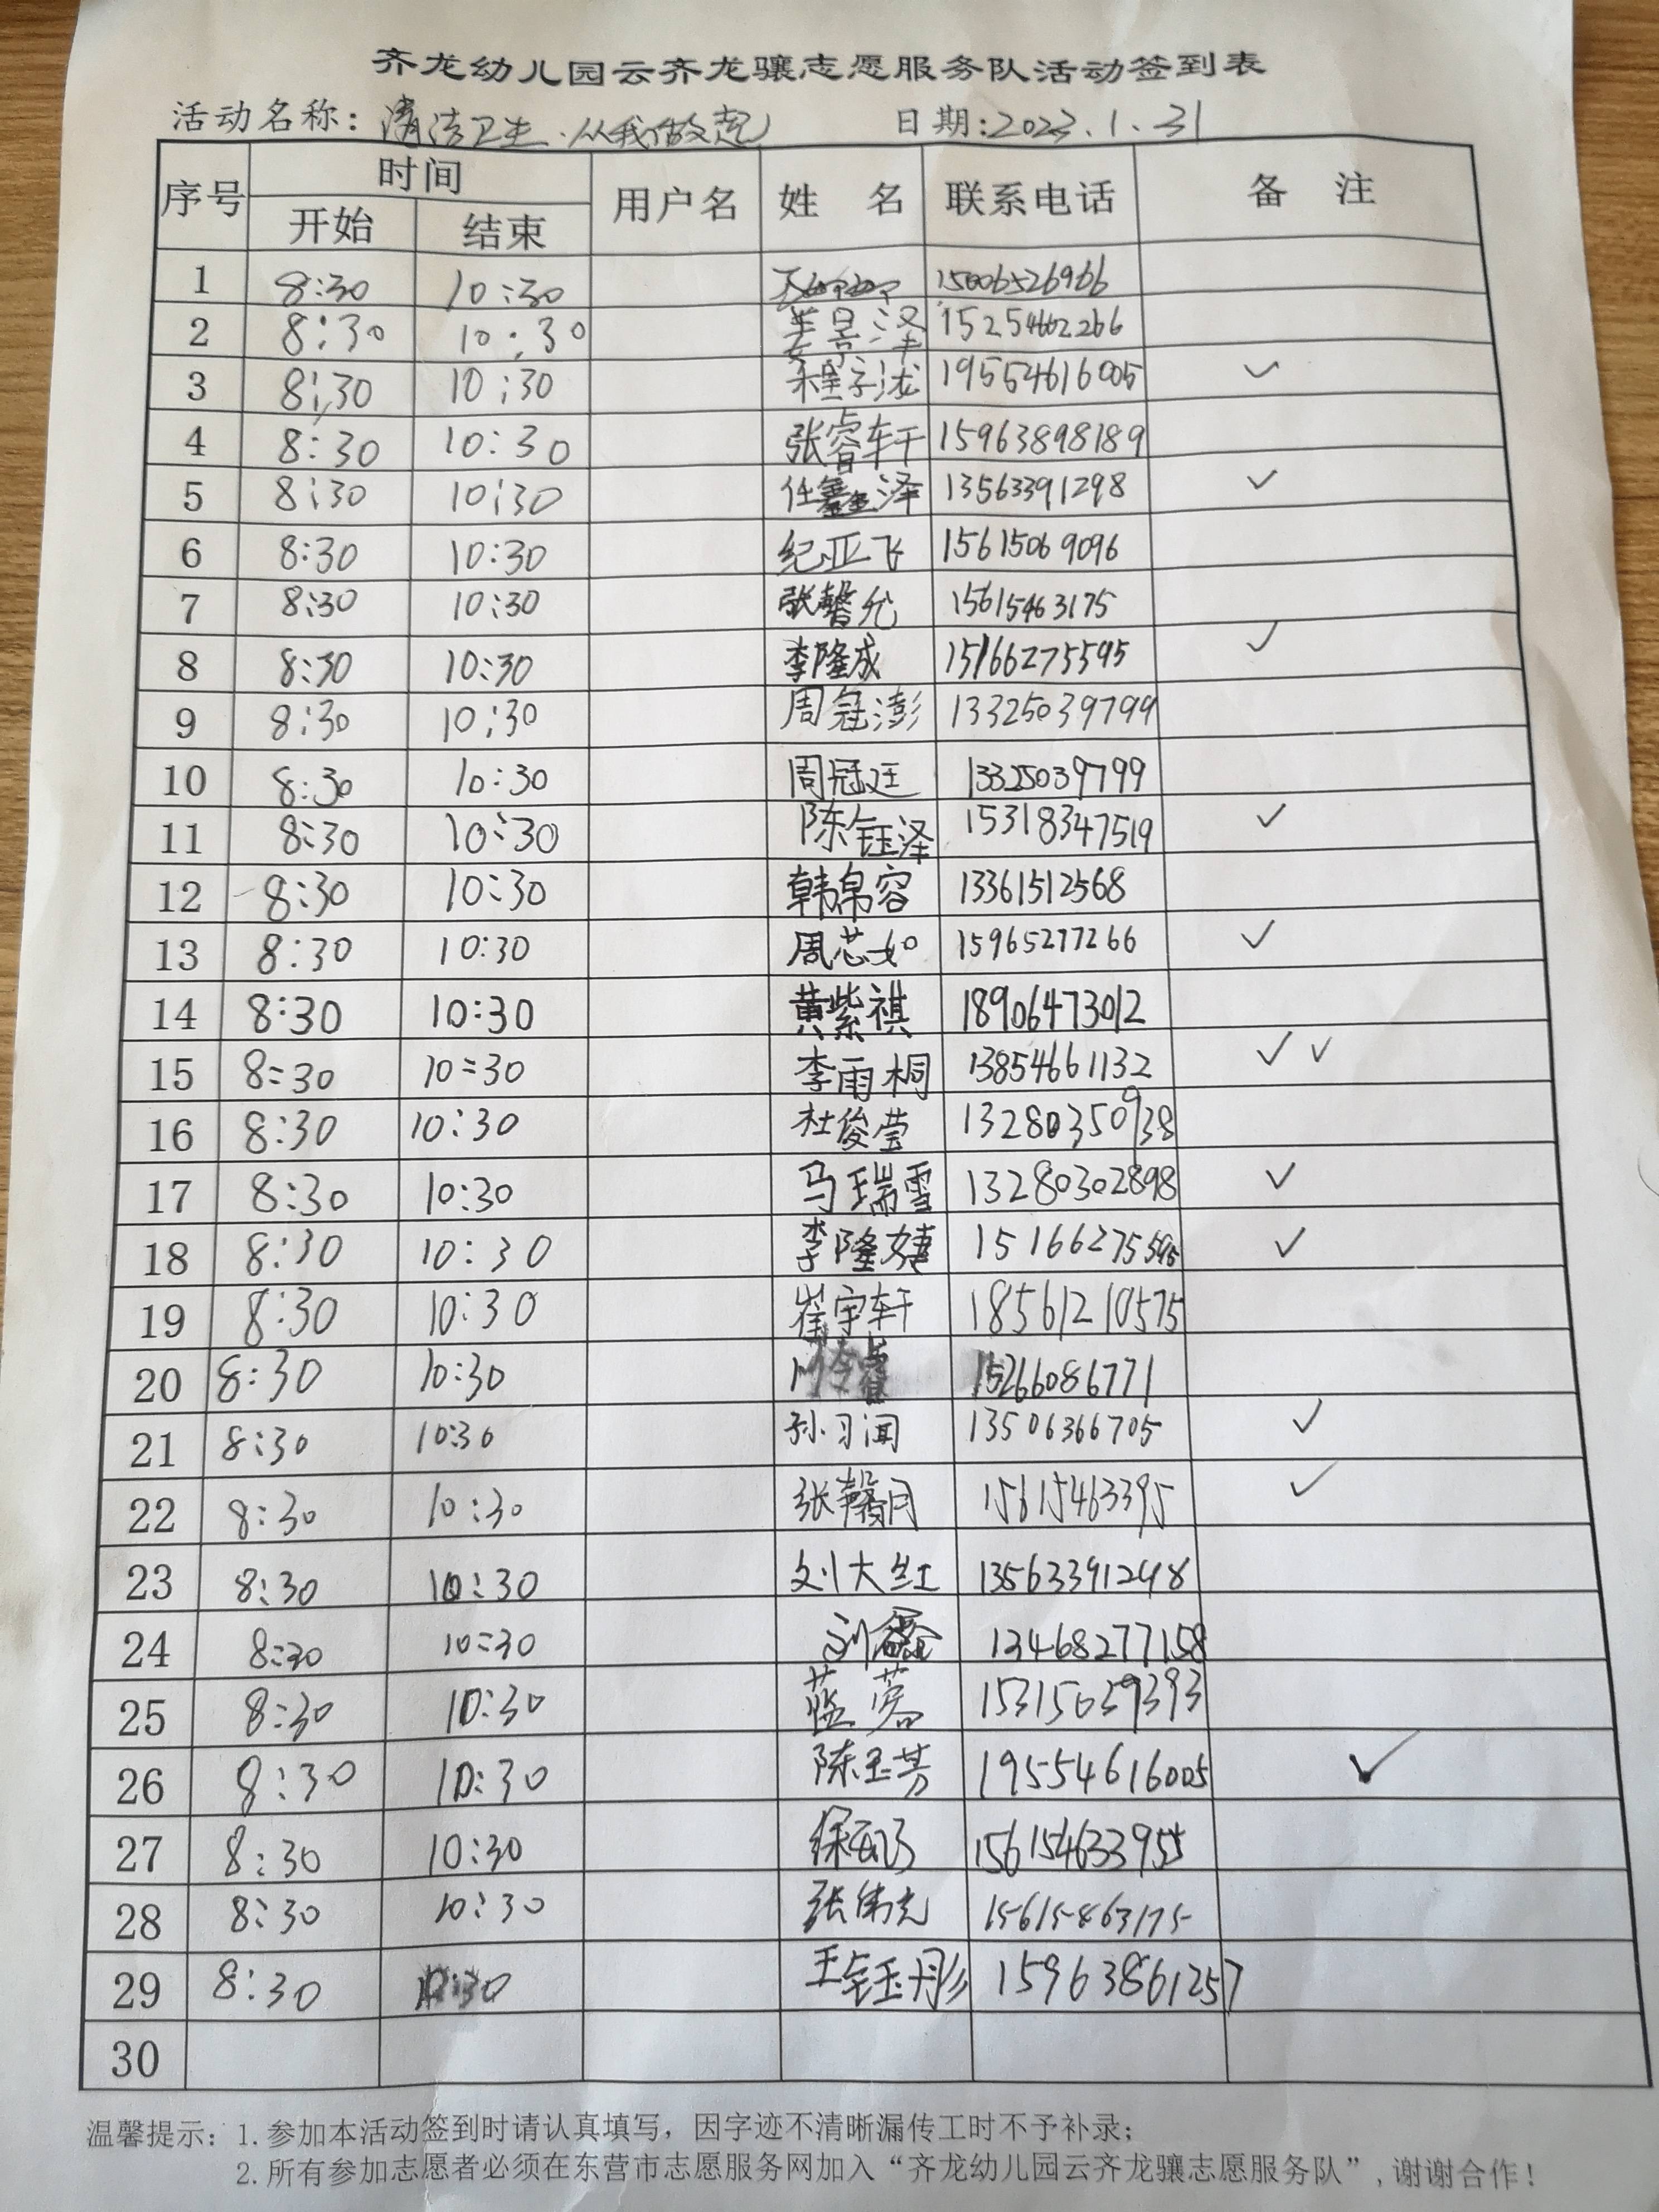 齐龙幼儿园云齐龙骧志愿服务队活动签到表
活动名称：清洁卫生.从我做起 日期:2023.1.31
序号 时间 用户名 姓 名 联系电话 备 注
开始 结束
1 8:30 10:30 15006526966
2 8:30 10:30 姜景泽 15254662266
3 8:30 10:30 程子泷 19554616005 ✓
4 8:30 10:30 张睿轩 15963898189
5 8:30 10:30 任鑫泽 13563391298 ✓
6 8:30 10:30 纪亚飞 15615069096
7 8:30 10:30 张馨允 15615463175
8 8:30 10:30 李隆成 15166275595 ✓
9 8:30 10:30 周冠澎 13325039799
10 8:30 10:30 周冠廷 13325039799
11 8:30 10:30 陈钰泽 15318347519 ✓
12 8:30 10:30 韩帛容 13361512568
13 8:30 10:30 周芯如 15965277266 ✓
14 8:30 10:30 黄紫祺 18906473012
15 8:30 10:30 李雨桐 13854661132 ✓ ✓
16 8:30 10:30 杜俊莹 13280350938
17 8:30 10:30 马瑞雪 13280302898 ✓
18 8:30 10:30 李隆婕 15166275595 ✓
19 8:30 10:30 崔宇轩 18561210575
20 8:30 10:30 15266086771
21 8:30 10:30 孙习闻 13506366705 ✓
22 8:30 10:30 张馨月 15615463395 ✓
23 8:30 10:30 刘大红 13563391248
24 8:30 10:30 刘鑫 13468277158
25 8:30 10:30 蓝蓉 15315039393
26 8:30 10:30 陈玉芳 19554616005 ✓
27 8:30 10:30 15615463395
28 8:30 10:30 张伟光 15615463175
29 8:30 10:30 王钰彤 15963861257
30
温馨提示：1.参加本活动签到时请认真填写，因字迹不清晰漏传工时不予补录；
2.所有参加志愿者必须在东营市志愿服务网加入“齐龙幼儿园云齐龙骧志愿服务队”,谢谢合作！